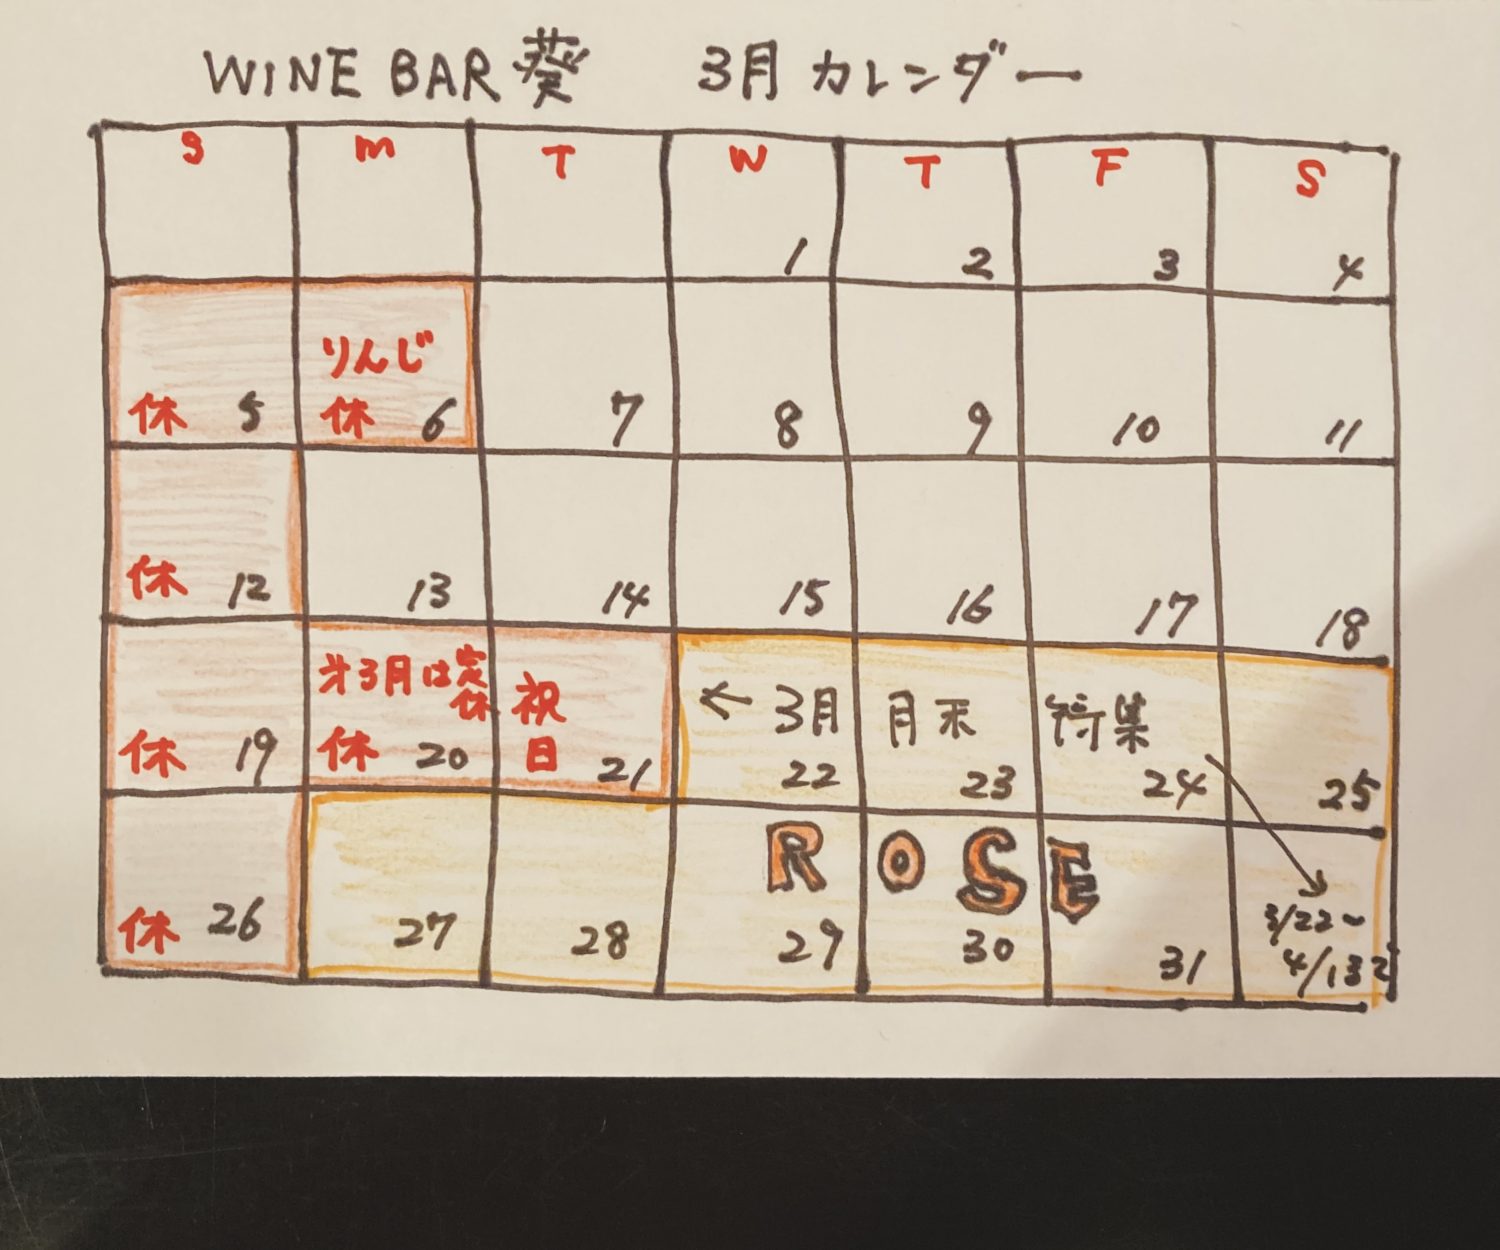 WINE BAR 葵 3月 カレンダー
S M T W T F S
1 2 3 4
りんじ
休 5 休 6 7 8 9 10 11
休 12 13 14 15 16 17 18
才3月は定休
祝日
← 3月 月末 特集
休 19 休 20 21 22 23 24 25
ROSE
休 26 27 28 29 30 31
3/22~
4/1まで